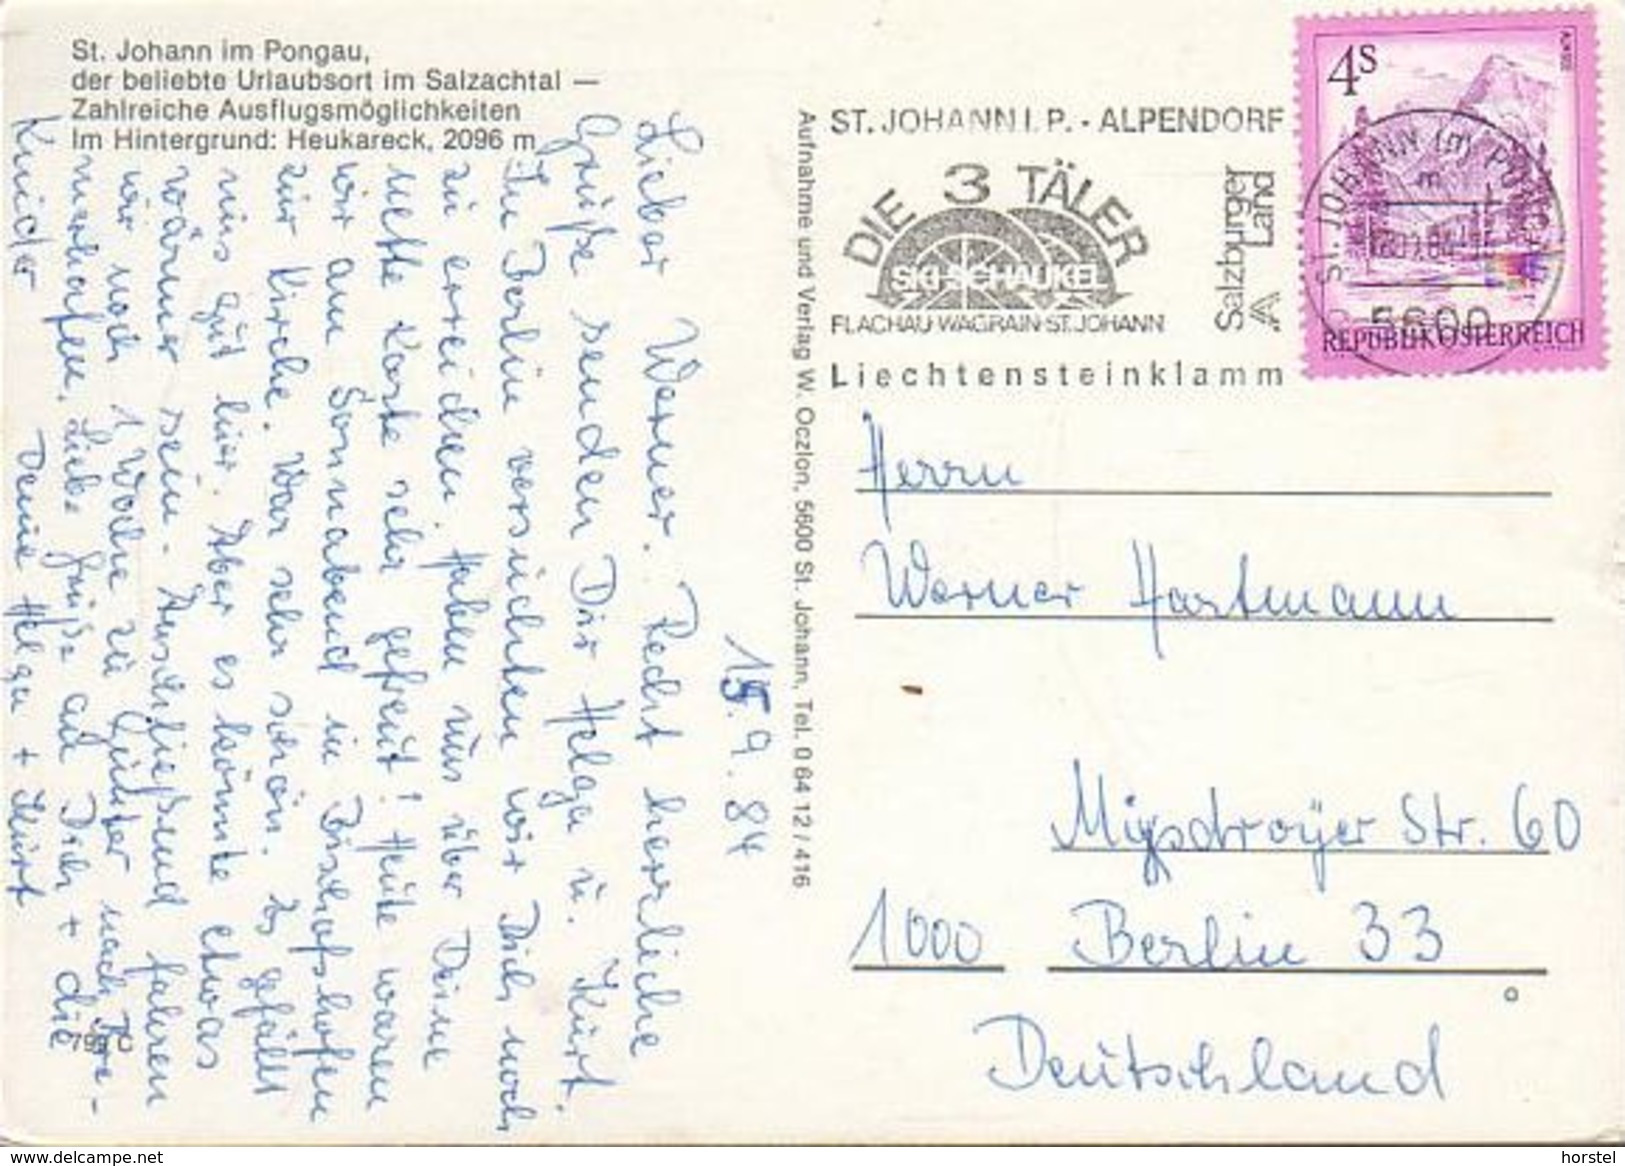 St. Johann im Pongau,
der beliebte Urlaubsort im Salzachtal —
Zahlreiche Ausflugsmöglichkeiten
Im Hintergrund: Heukareck, 2096 m
15.9.84
Lieber Werner. Recht herzliche
Grüße senden Dir Helga u. Kurt.
In Berlin versuchten wir Dich noch
zu erreichen. Haben uns über Deine
nette Karte sehr gefreut! Heute waren
wir am Sonnabend in Bischofshofen
zur Kirche. War sehr schön. Es gefällt
uns gut hier. Aber es könnte etwas
wärmer sein. Anschließend fahren
wir noch 1 Woche zu Günter nach
Liebe Grüße an Dich + die
Kinder Deine Helga + Kurt
799 C
Aufnahme und Verlag W. Oczlon, 5600 St. Johann, Tel. 0 64 12 / 416
ST. JOHANN I. P. - ALPENDORF
DIE 3 TÄLER
SKI-SCHAUKEL
FLACHAU-WAGRAIN-ST.JOHANN
Salzburger
Land
Liechtensteinklamm
4S
ALMSEE
REPUBLIK ÖSTERREICH
ST. JOHANN PONGAU
m
5600
Herrn
Werner Hartmann
Migsdroyer Str. 60
1000 Berlin 33
Deutschland
delcampe.net
horstel